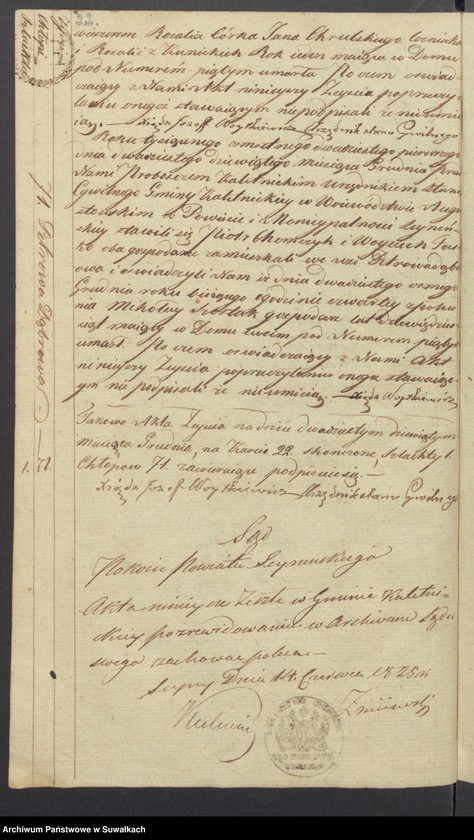 22.
wiczowem Rozalia Córka Jana Chrulskiego
i Rozalii z Kunickich Rok ieden maiąca w Domu
pod Numerem piątym umarła Po czem oświad-
czaiący z Nami Akt niniejszy Zeyścia po przeczy-
taniu onegoż stawaiącym niepodpisali że nieumie-
ią. Xiądz Jozeff Woytkiewicz Urzędnik Stanu Cywilnego
Roku tysiącznego osmsetnego dwudziestego pierwszego
dnia dwudziestego dziewiątego miesiąca Grudnia przed
Nami Proboszczem Kaletnickim Urzędnikiem Stanu
Cywilnego Gminy Kaletnickiey w Woiewództwie Augu-
stowskim w Powiecie i Municypalności Seynen-
skiey stawili się Piotr Chomczyk i Woyciech
oba gospodarze zamieszkali we wsi Piotrowadąbro-
wa i oświadczyli Nam iż dnia dwudziestego osmego
Grudnia roku bieżącego o godzinie czwartey z połud-
nia Mikołay gospodarz lat
maiący w Domu swoim pod Numerem piątym
umarł. Po czem oświadczaiący z Nami Akt
niniejszy Zeyścia po przeczytaniu onego stawaiący-
ym nie podpisali że nieumieią. Xiądz Woytkiewicz
N. Piotrowa Dąbrowa
Takowe Akta Zeyścia na dniu dwudziestym dziewiątym
miesiąca Grudnia, na Karcie 22. skończone, szlachty 1.
Chłopow 71. zawieraiące podpisuie się.
1. 71.
Xiądz Jozeff Woytkiewicz Urzędnik Stanu Cywilnego
Sąd
Pokoiu Powiatu Seynenskiego
Akta niniejsze Zeszłe w Gminie Kaletni-
ckiey po zrewidowaniu w Archiwum Sądu
swego zachować poleca.
Seyny Dnia 14 Czerwca 1828 r.
Archiwum Państwowe w Suwałkach